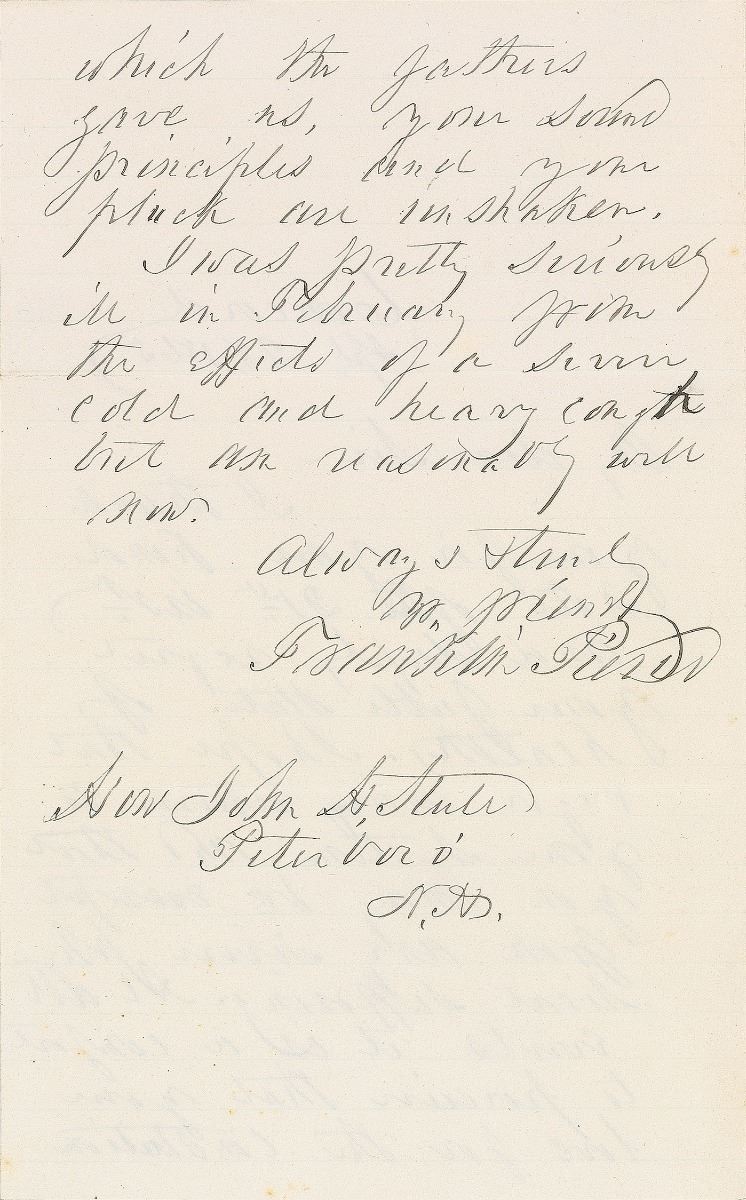 which the fathers
gave us, your sound
principles and your
pluck are unshaken.
I was pretty seriously
ill in February from
the effects of a severe
cold and heavy cough
but am reasonably well
now.
Always & truly
yr. friend
Franklin Pierce
Hon John H, Steele
Peterboro'
N.H.